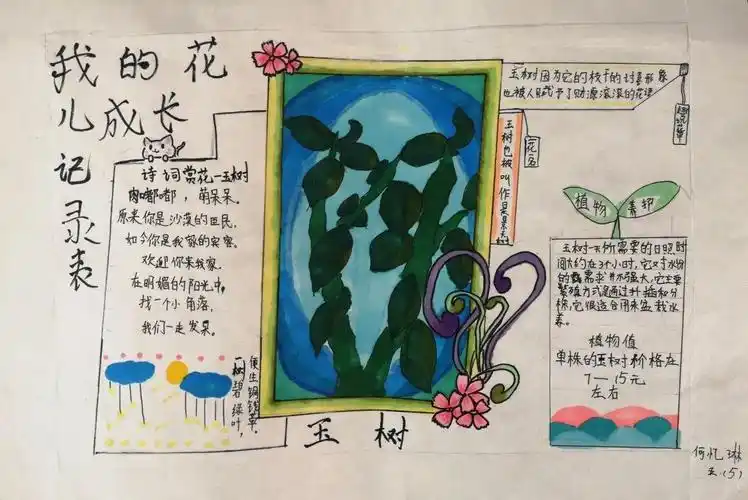 我的花
儿成长
记录表
诗词赏花—玉树
肉嘟嘟，萌呆呆。
原来你是沙漠的臣民，
如今你是我家的宾客。
欢迎你来我家，
在明媚的阳光中，
找一个小角落，
我们一起发呆。
一树碧绿叶，
便生铜钱草。
玉树
玉树因为它的枝干的
也被人赋予了财源滚滚的花语
花名
玉树也被叫作景
植物 养护
玉树一天所需要的日照时
间大约在3个小时，它对水份
的需求并不强大，它主要
繁殖方式是通过扦插和分
株，它很适合用来盆栽水
养。
植物值
单株的玉树价格在
7—15元
左右
何忆琳
五（5）